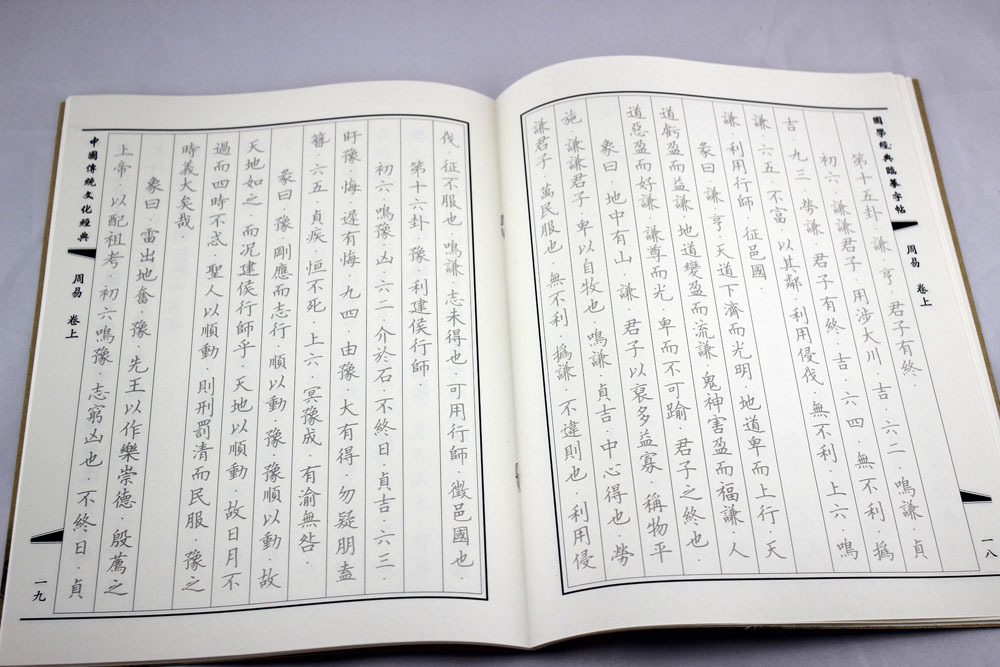 國學經典臨摹字帖
周易 卷上
一八
第十五卦．謙．亨．君子有終．
初六．謙謙君子．用涉大川．吉．六二．鳴謙．貞
吉．九三．勞謙．君子有終．吉．六四．無不利．撝
謙．六五．不富．以其鄰．利用侵伐．無不利．上六．鳴
謙．利用行師．征邑國．
彖曰．謙．亨．天道下濟而光明．地道卑而上行．天
道虧盈而益謙．地道變盈而流謙．鬼神害盈而福謙．人
道惡盈而好謙．謙尊而光．卑而不可踰．君子之終也．
象曰．地中有山．謙．君子以裒多益寡．稱物平
施．謙謙君子．卑以自牧也．鳴謙．貞吉．中心得也．勞
謙君子．萬民服也．無不利．撝謙．不違則也．利用侵
伐．征不服也．鳴謙．志未得也．可用行師．徵邑國也．
第十六卦．豫．利建侯行師．
初六．鳴豫．凶．六二．介於石．不終日．貞吉．六三．
盱豫．悔．遲有悔．九四．由豫．大有得．勿疑朋盍
簪．六五．貞疾．恒不死．上六．冥豫成．有渝無咎．
彖曰．豫．剛應而志行．順以動．豫．豫順以動．故
天地如之．而況建侯行師乎．天地以順動．故日月不
過而四時不忒．聖人以順動．則刑罰清而民服．豫之
時義大矣哉．
象曰．雷出地奮．豫．先王以作樂崇德．殷薦之
上帝．以配祖考．初六鳴豫．志窮凶也．不終日．貞
中國傳統文化經典
周易 卷上
一九